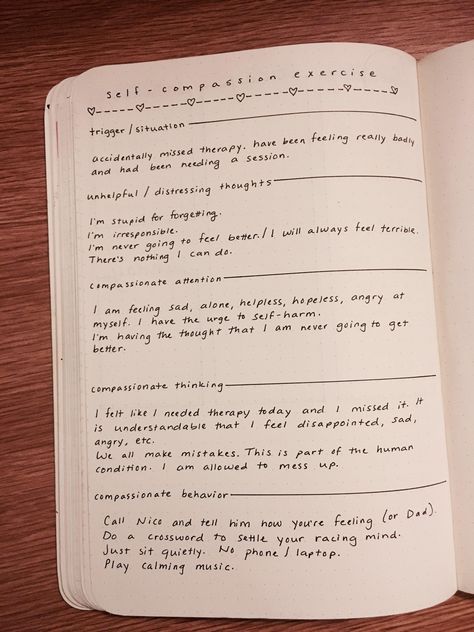 self-compassion exercise
trigger/situation
accidentally missed therapy. have been feeling really badly
and had been needing a session.
unhelpful / distressing thoughts
I'm stupid for forgetting.
I'm irresponsible.
I'm never going to feel better./I will always feel terrible.
There's nothing I can do.
compassionate attention
I am feeling sad, alone, helpless, hopeless, angry at
myself. I have the urge to self-harm.
I'm having the thought that I am never going to get
better.
compassionate thinking
I felt like I needed therapy today and I missed it. It
is understandable that I feel disappointed, sad,
angry, etc.
We all make mistakes. This is part of the human
condition. I am allowed to mess up.
compassionate behavior
Call Nico and tell him how you're feeling (or Dad).
Do a crossword to settle your racing mind.
Just sit quietly. No phone/laptop.
Play calming music.